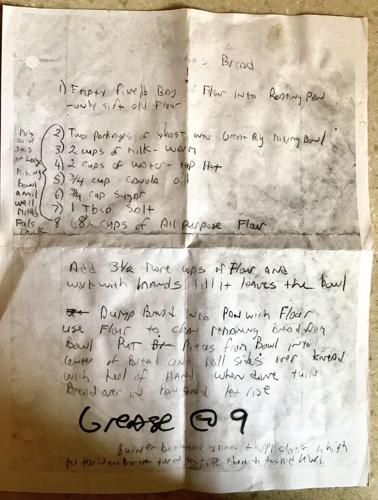 Bread
1) Empty five lb Bag Flour into Roasting Pan
-only sift old Flour
Mix
all of
this
in Large
Mixing
bowl
until
well
Mixed
2) Two Packages of yeast into Great Big Mixing Bowl
3) 2 cups of Milk - warm
4) 2 cups of water - tap Hot
5) 3/4 cup Canola Oil
6) 3/4 cup Sugar
7) 1 Tbsp Salt
8 cups of All Purpose Flour
Add 3 1/2 more cups of Flour and
work with hands till it leaves the bowl
Dump Bread into Pan with Flour
use Flour to clean remaining bread from
Bowl PUT Pieces from Bowl into
center of Bread and roll sides over knead
with heel of HAND when done turn
Bread over in Pan and let rise
Grease @ 9